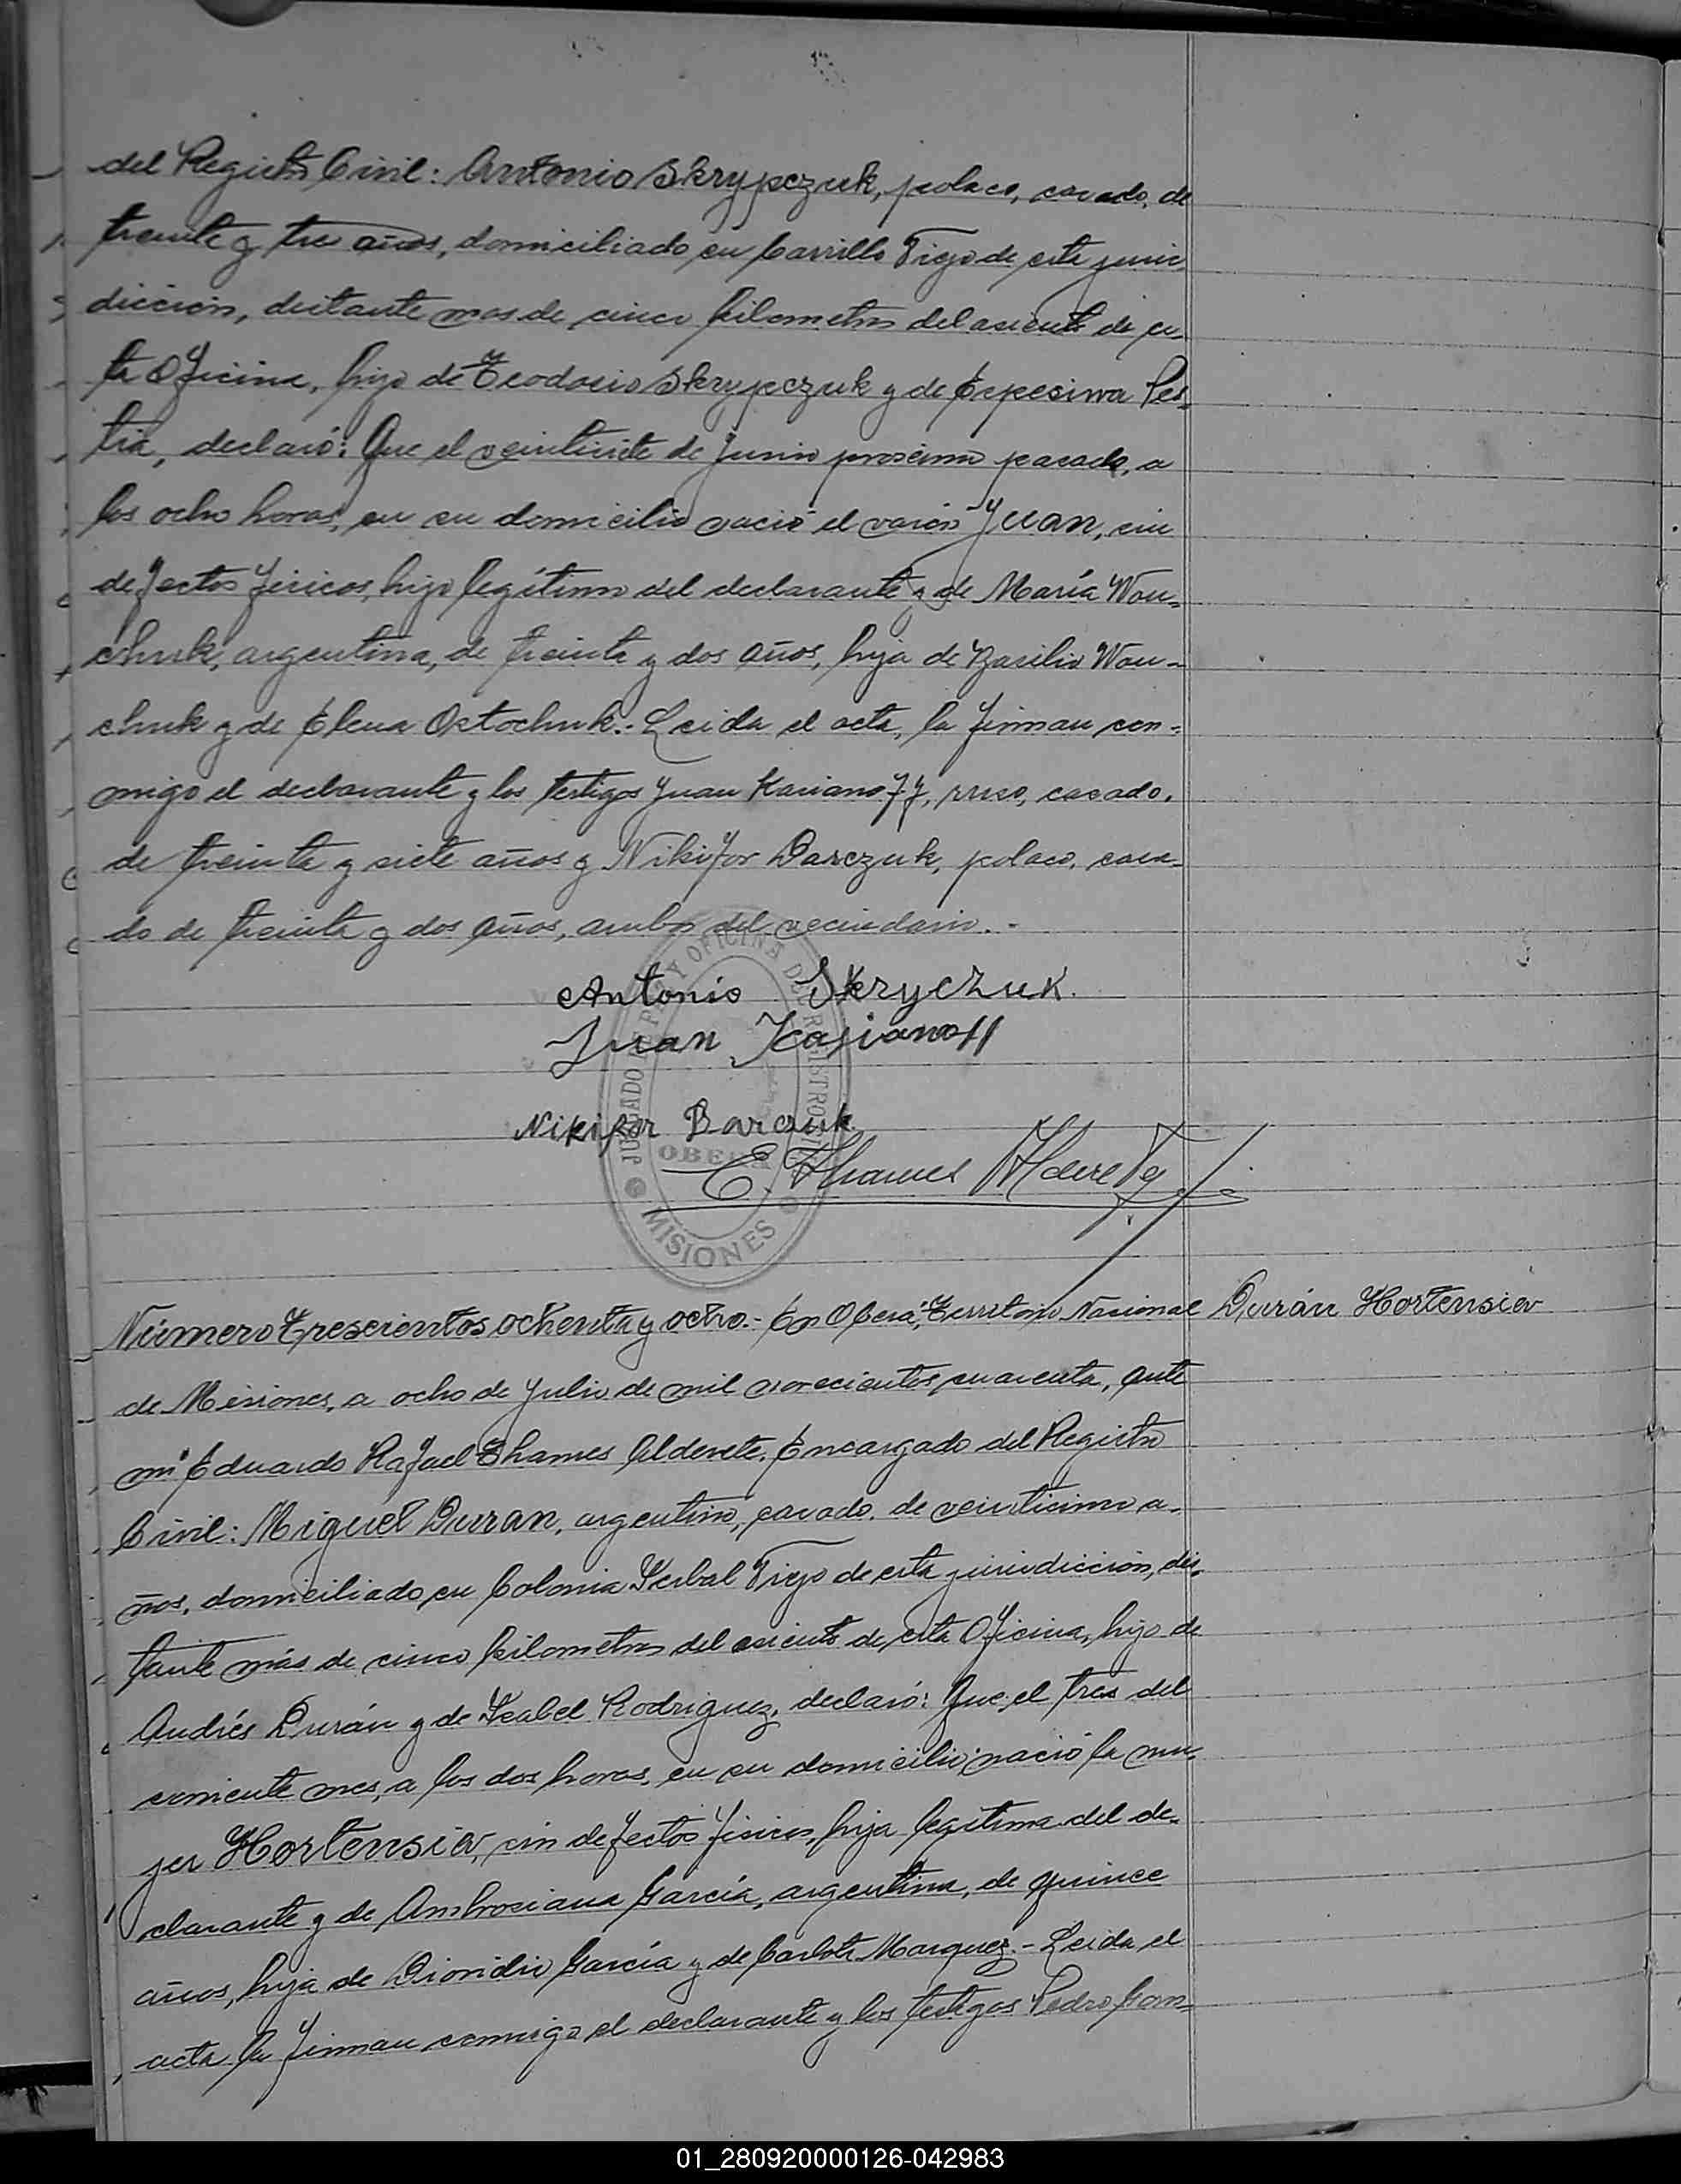 del Registro Civil: Antonio Skrypczuk, polaco, casado, de
treinta y tres años, domiciliado en Carrillo Viejo de esta juris-
dicción, distante mas de cinco kilometros del asiento de es-
ta Oficina, hijo de Teodosio Skrypczuk y de Pes-
tia, declaró: Que el veintisiete de Junio proximo pasado, a
las ocho horas, en su domicilio nació el varón Juan, sin
defectos fisicos, hijo legítimo del declarante y de María Wou-
chuk, argentina, de treinta y dos años, hija de Basilio Wou-
chuk y de Elena Ostochuk.- Leida el acta, la firman con-
migo el declarante y los testigos Juan Kasianoff, ruso, casado,
de treinta y siete años y Nikifor Barczuk, polaco, casa-
do de treinta y dos años, ambos del vecindario.-
Antonio Skryczuk.
Juan Kasianoff
Nikifor Barczuk
E. Thames Alderete
JUZGADO DE PAZ Y OFICINA DEL REGISTRO CIVIL
OBERA
MISIONES
Número Trescientos ochenta y ocho.- En Oberá, Territorio Nacional
Durán Hortensia
de Misiones, a ocho de Julio de mil novecientos cuarenta, ante
mi Eduardo Rafael Thames Alderete, Encargado del Registro
Civil: Miguel Duran, argentino, casado, de veinticinco a-
ños, domiciliado en Colonia Yerbal Viejo de esta jurisdicción, dis-
tante más de cinco kilometros del asiento de esta Oficina, hijo de
Andrés Durán y de Isabel Rodriguez, declaró: Que el tres del
corriente mes, a las dos horas, en su domicilio nació la mu-
jer Hortensia, sin defectos fisicos, hija legítima del de-
clarante y de Ambrosiana García, argentina, de quince
años, hija de Dionidio García y de Carlota Marquez.- Leida el
acta la firman conmigo el declarante y los testigos Pedro
01_280920000126-042983